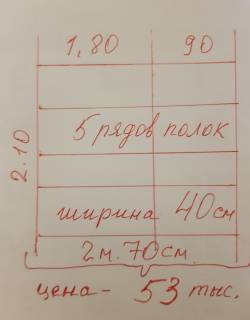 1,80 90
2.10
5 рядов полок
ширина 40см
2м.70см.
цена- 53 тыс.